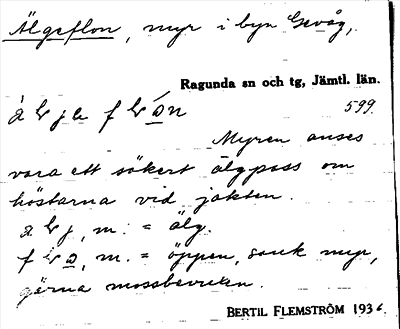 Älgeflon, myr i byn Gevåg,
Ragunda sn och tg, Jämtl. län.
599.
Myren anses
vara ett säkert älgpass om
höstarna vid jakten.
m. = älg.
m. = öppen, sank myr,
gärna mossbevuxen.
BERTIL FLEMSTRÖM 1936.